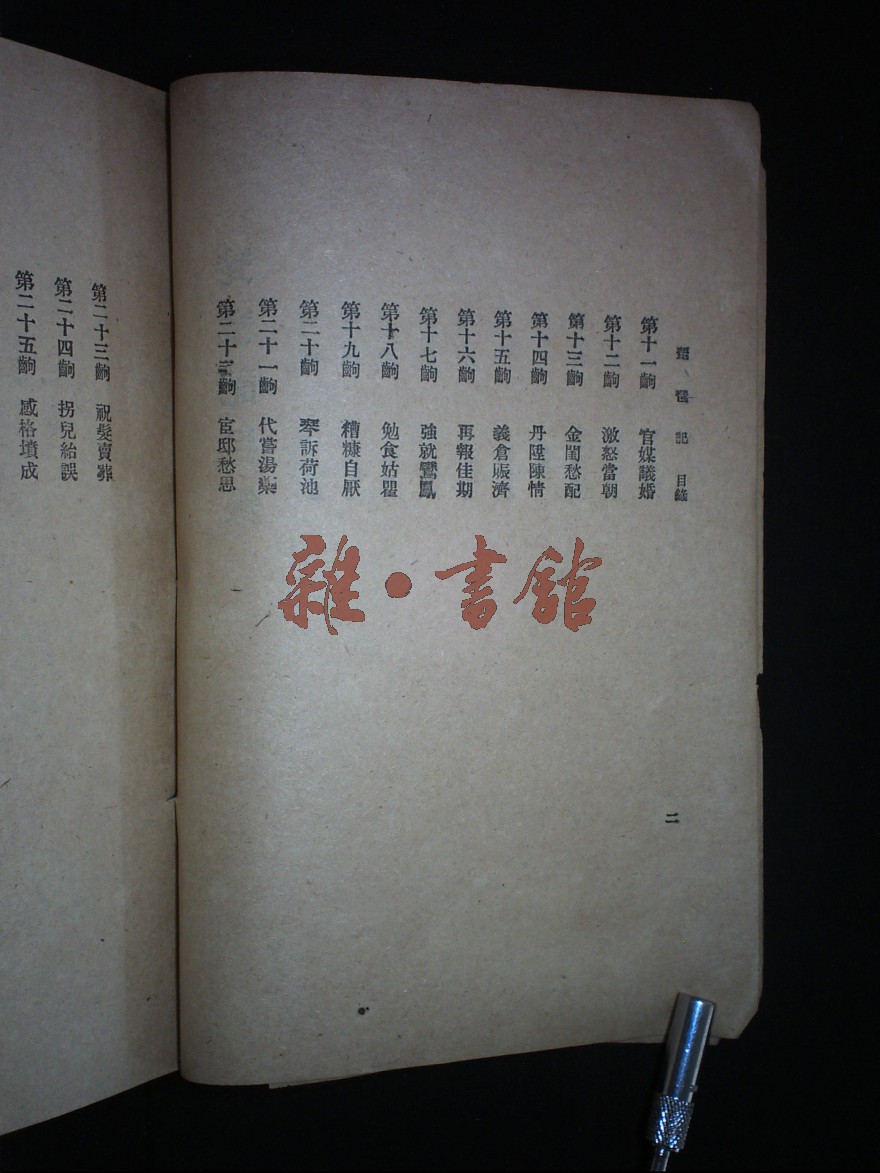 琵琶記 目錄
第十一齣 官媒議婚
第十二齣 激怒當朝
第十三齣 金閨愁配
第十四齣 丹陛陳情
第十五齣 義倉賑濟
第十六齣 再報佳期
第十七齣 強就鸞鳳
第十八齣 勉食姑
第十九齣 糟糠自厭
第二十齣 琴訴荷池
第二十一齣 代嘗湯藥
第二十二齣 宦邸愁思
二
第二十三齣 祝髮賣葬
第二十四齣 拐兒紿誤
第二十五齣 感格墳成
雜·書館